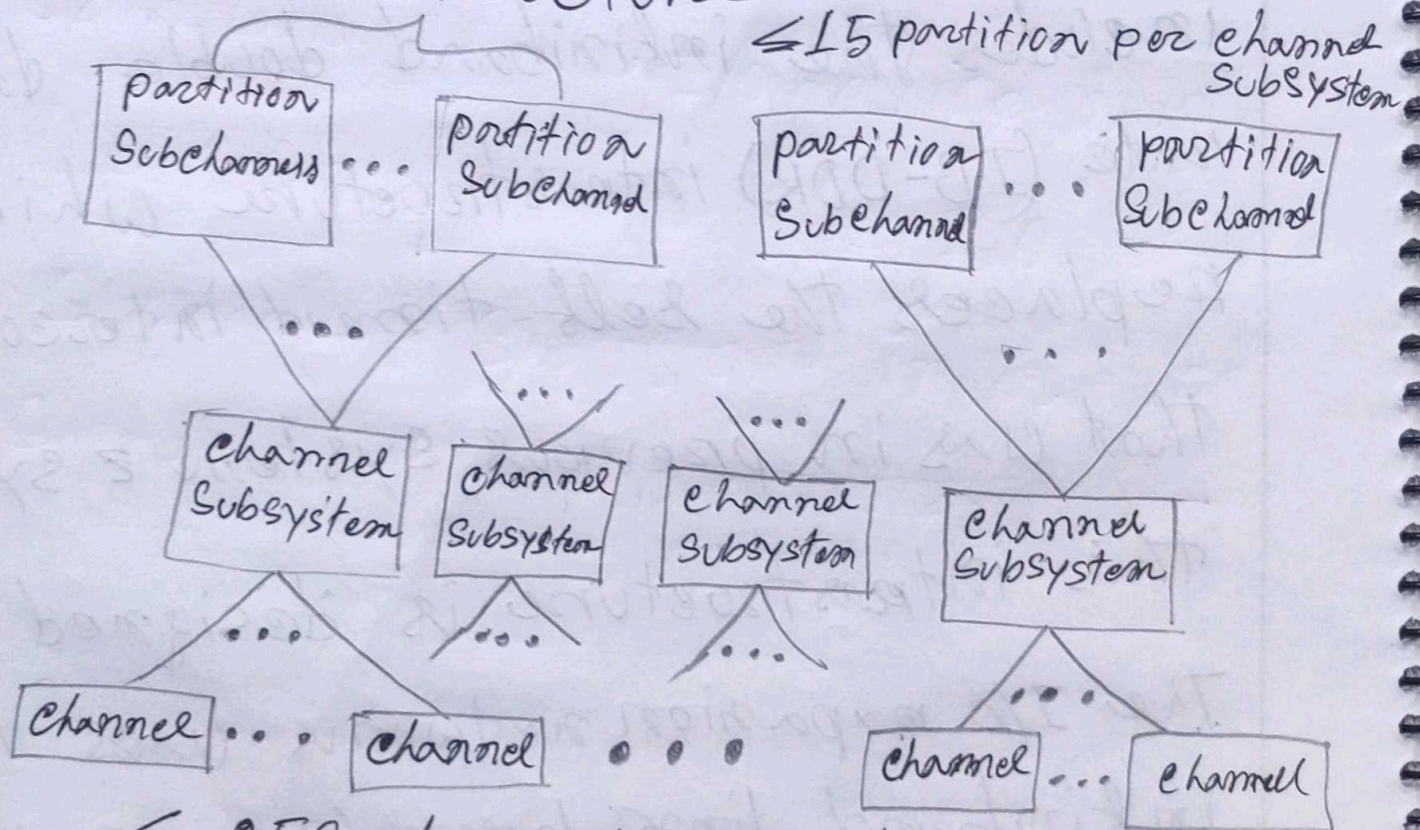 ≤15 partition per channel
subsystem
partition
Subchannels
...
partition
Subchannel
partition
Subchannel
...
partition
Subchannel
...
...
...
...
channel
Subsystem
channel
Subsystem
channel
Subsystem
channel
Subsystem
...
...
...
...
channel
...
channel
...
channel
...
channel